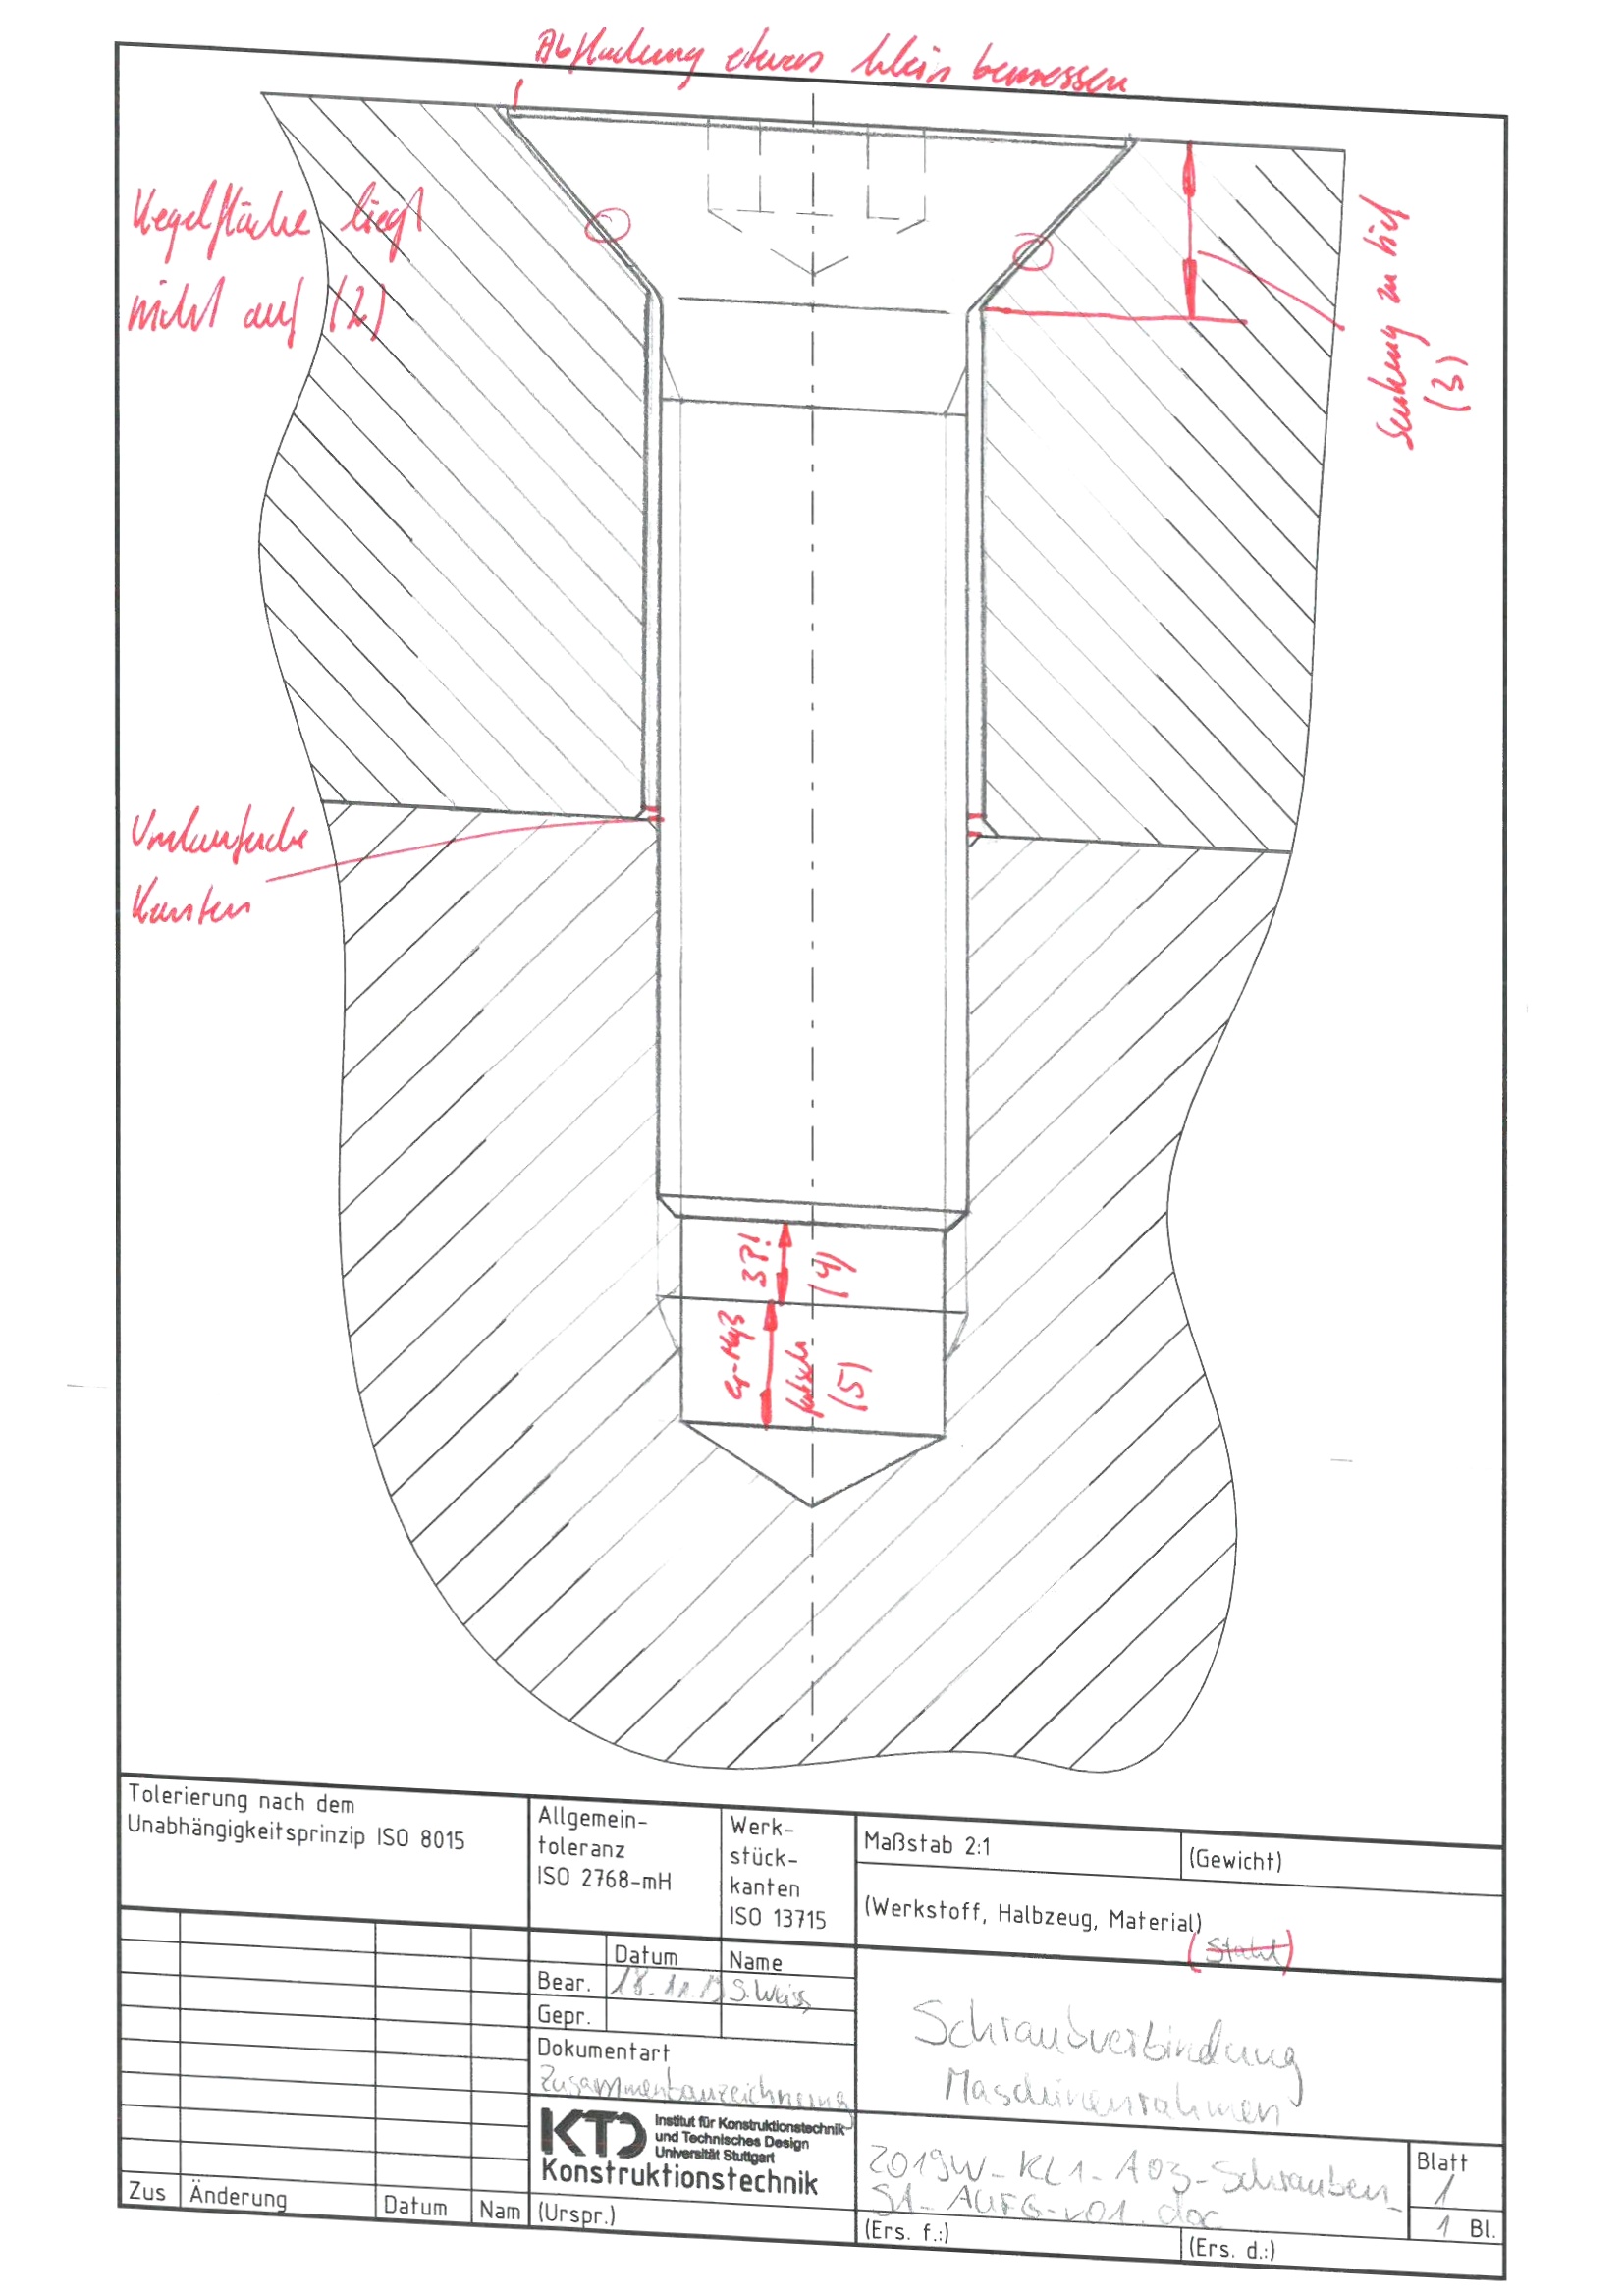 Abflachung etwas klein bemessen
Kegelfläche liegt
nicht auf (2)
Senkung zu tief
(3)
Umlaufende
Kanten
3P!
(4)
falsch
(5)
Tolerierung nach dem
Unabhängigkeitsprinzip ISO 8015
Allgemein-
toleranz
ISO 2768-mH
Werk-
stück-
kanten
ISO 13715
Maßstab 2:1
(Gewicht)
(Werkstoff, Halbzeug, Material)
(Stahl)
Datum
Name
Bear.
S. Weiss
Gepr.
Dokumentart
Zusammenbauzeichnung
Schraubverbindung
Maschinenrahmen
KTD
Institut für Konstruktionstechnik
und Technisches Design
Universität Stuttgart
Konstruktionstechnik
2019W-KL1-A03-Schrauben_
S1-AUFG-v01.doc
Blatt
1
1 Bl.
Zus
Änderung
Datum
Nam
(Urspr.)
(Ers. f.:)
(Ers. d.:)